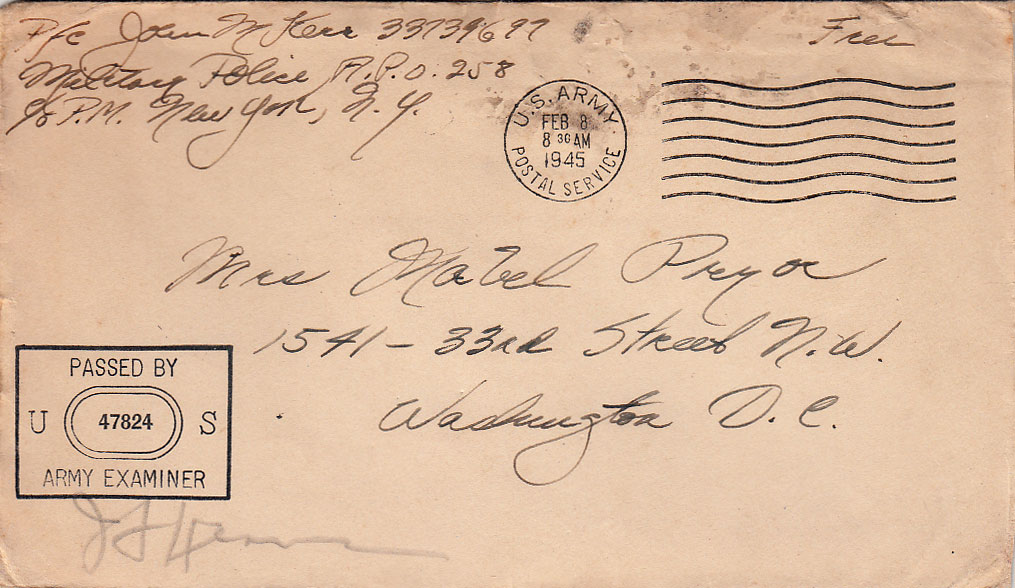 Pfc John M Kerr 33739697
Free
Military Police, A.P.O. 258
c/o P.M. New York, N.Y.
U.S. ARMY.
FEB 8
8 30 AM
1945
POSTAL SERVICE
Mrs Mabel Pryor
1541 - 33rd Street N.W.
Washington D.C.
PASSED BY
U 47824 S
ARMY EXAMINER